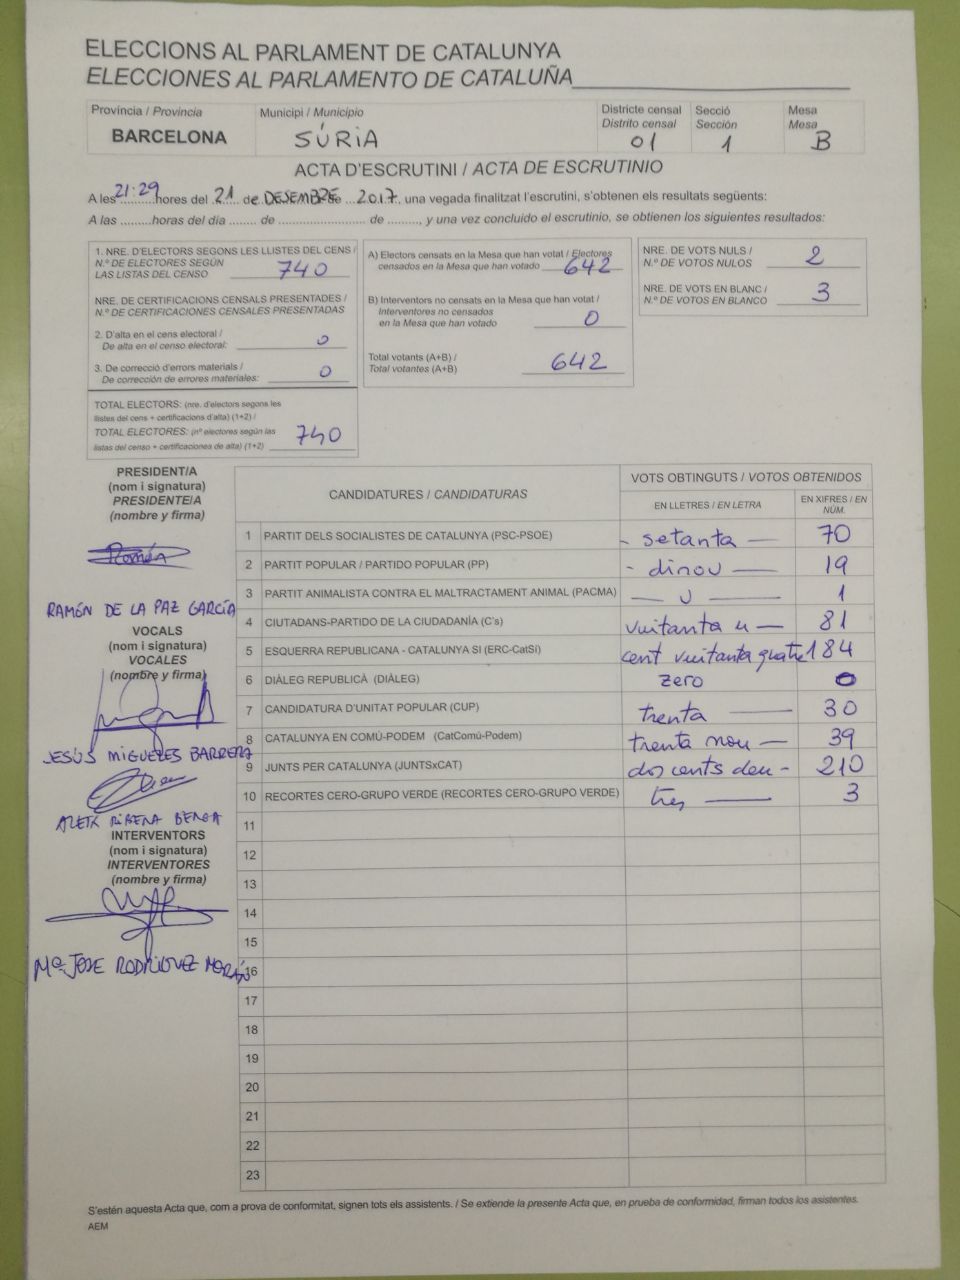 ELECCIONS AL PARLAMENT DE CATALUNYA
ELECCIONES AL PARLAMENTO DE CATALUÑA
Província / Provincia
BARCELONA
Municipi / Municipio
SÚRIA
Districte censal
Distrito censal
01
Secció
Sección
1
Mesa
Mesa
B
ACTA D'ESCRUTINI / ACTA DE ESCRUTINIO
A les 21:29 hores del 21 de DESEMBRE de 2017, una vegada finalitzat l'escrutini, s'obtenen els resultats següents:
A las .........horas del día ...... de .......................... de ........, y una vez concluido el escrutinio, se obtienen los siguientes resultados:
1. NRE. D'ELECTORS SEGONS LES LLISTES DEL CENS /
N.º DE ELECTORES SEGÚN
LAS LISTAS DEL CENSO 740
NRE. DE CERTIFICACIONS CENSALS PRESENTADES /
N.º DE CERTIFICACIONES CENSALES PRESENTADAS
2. D'alta en el cens electoral /
De alta en el censo electoral: 0
3. De correcció d'errors materials /
De corrección de errores materiales: 0
TOTAL ELECTORS: (nre. d'electors segons les
llistes del cens + certificacions d'alta) (1+2) /
TOTAL ELECTORES: (nº electores según las
listas del censo + certificaciones de alta) (1+2) 740
A) Electors censats en la Mesa que han votat / Electores
censados en la Mesa que han votado 642
B) Interventors no censats en la Mesa que han votat /
Interventores no censados
en la Mesa que han votado 0
Total votants (A+B) /
Total votantes (A+B) 642
NRE. DE VOTS NULS /
N.º DE VOTOS NULOS 2
NRE. DE VOTS EN BLANC /
N.º DE VOTOS EN BLANCO 3
PRESIDENT/A
(nom i signatura)
PRESIDENTE/A
(nombre y firma)
Román
RAMÓN DE LA PAZ GARCÍA
VOCALS
(nom i signatura)
VOCALES
(nombre y firma)
JESÚS MIGUELES BARRERA
INTERVENTORS
(nom i signatura)
INTERVENTORES
(nombre y firma)
Mª JOSE RODRIGUEZ MORÁN
CANDIDATURES / CANDIDATURAS
VOTS OBTINGUTS / VOTOS OBTENIDOS
EN LLETRES / EN LETRA
EN XIFRES / EN
NÚM.
1 PARTIT DELS SOCIALISTES DE CATALUNYA (PSC-PSOE) - setanta — 70
2 PARTIT POPULAR / PARTIDO POPULAR (PP) - dinou — 19
3 PARTIT ANIMALISTA CONTRA EL MALTRACTAMENT ANIMAL (PACMA) — u — 1
4 CIUTADANS-PARTIDO DE LA CIUDADANÍA (C's) vuitanta u — 81
5 ESQUERRA REPUBLICANA - CATALUNYA SI (ERC-CatSí) cent vuitanta quatre 184
6 DIÀLEG REPUBLICÀ (DIÀLEG) zero 0
7 CANDIDATURA D'UNITAT POPULAR (CUP) trenta — 30
8 CATALUNYA EN COMÚ-PODEM (CatComú-Podem) trenta nou — 39
9 JUNTS PER CATALUNYA (JUNTSxCAT) dos cents deu - 210
10 RECORTES CERO-GRUPO VERDE (RECORTES CERO-GRUPO VERDE) tres — 3
11
12
13
14
15
16
17
18
19
20
21
22
23
S'estén aquesta Acta que, com a prova de conformitat, signen tots els assistents. / Se extiende la presente Acta que, en prueba de conformidad, firman todos los asistentes.
AEM